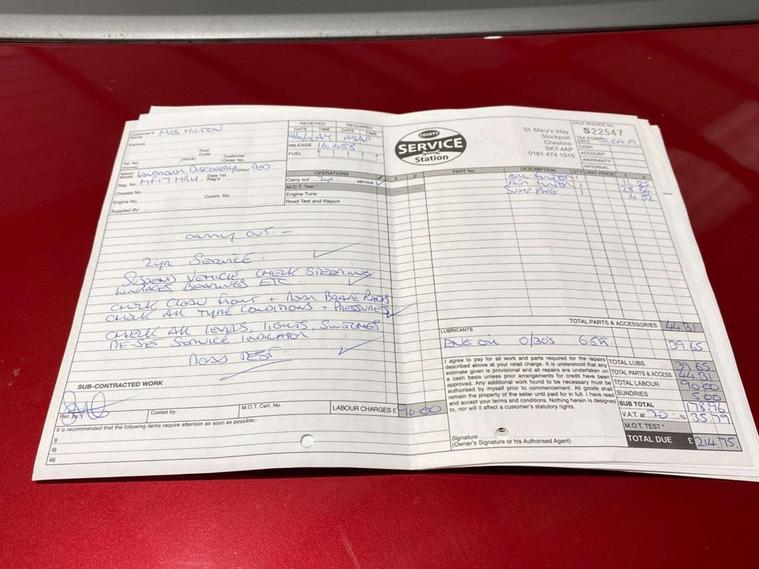 Customer's Name MRS HILTON
Address
Post Code
Tel. No. (Work) Customer Order No.
Make/Model LANDROVER DISCOVERY
Reg. No. MF17 MRU Date 1st Reg'd
Chassis No.
Engine No. Comm. No.
Supplied By
RECEIVED REQUIRED
DATE TIME DATE TIME
AM ASAP
MILEAGE 16,458
FUEL
OPERATIONS £ p
Carry out 2yr service ✓
M.O.T. Test *
Engine Tune
Road Test and Report
CARRY OUT :-
2yr SERVICE ✓
SUSPEND VEHICLE, CHECK STEERING
LINKAGES BEARINGS ETC
CHECK CLEAN FRONT + REAR BRAKE PADS
CHECK ALL TYRE CONDITIONS + PRESSURES ✓
CHECK ALL LEVELS, LIGHTS, SWITCHES
RE-SET SERVICE INDICATOR
ROAD TEST ✓
SUB-CONTRACTED WORK
Rec.
Costed by:
M.O.T. Cert. No.
LABOUR CHARGES £ 90.00
It is recommended that the following items require attention as soon as possible:-
i)
ii)
iii)
SERVICE
Station
St. Mary's Way
Stockport
Cheshire
SK1 4AP
0161 474 1515
SALE INVOICE No.
S22547
CASH
ACCOUNT
WARRANTY
INTERNAL
PART No. DESCRIPTION QTY UNIT PRICE £ p
OIL FILTER 1
AIR FILTER 1
SUMP PLUG 1
TOTAL PARTS & ACCESSORIES 44.31
LUBRICANTS
ENG OIL 0/30s 39 65
I agree to pay for all work and parts required for the repairs
described above at your retail charge. It is understood that any
estimate given is provisional and all repairs are undertaken on
a cash basis unless prior arrangements for credit have been
approved. Any additional work found to be necessary must be
authorised by myself prior to commencement. All goods shall
remain the property of the seller until paid for in full. I have read
and accept your terms and conditions. Nothing herein is designed
to, nor will it affect a customer's statutory rights.
TOTAL LUBS. 39.65
TOTAL PARTS & ACCESS 44.31
TOTAL LABOUR 90.00
SUNDRIES 5.00
SUB TOTAL 178.96
V.A.T. at 20 % 35.79
M.O.T. TEST *
TOTAL DUE £ 214.75.
Signature
(Owner's Signature or his Authorised Agent)